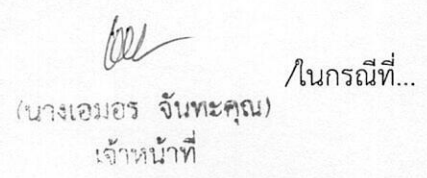 /ในกรณีที่...
(นางเอมอร จันทะคุณ)
เจ้าหน้าที่